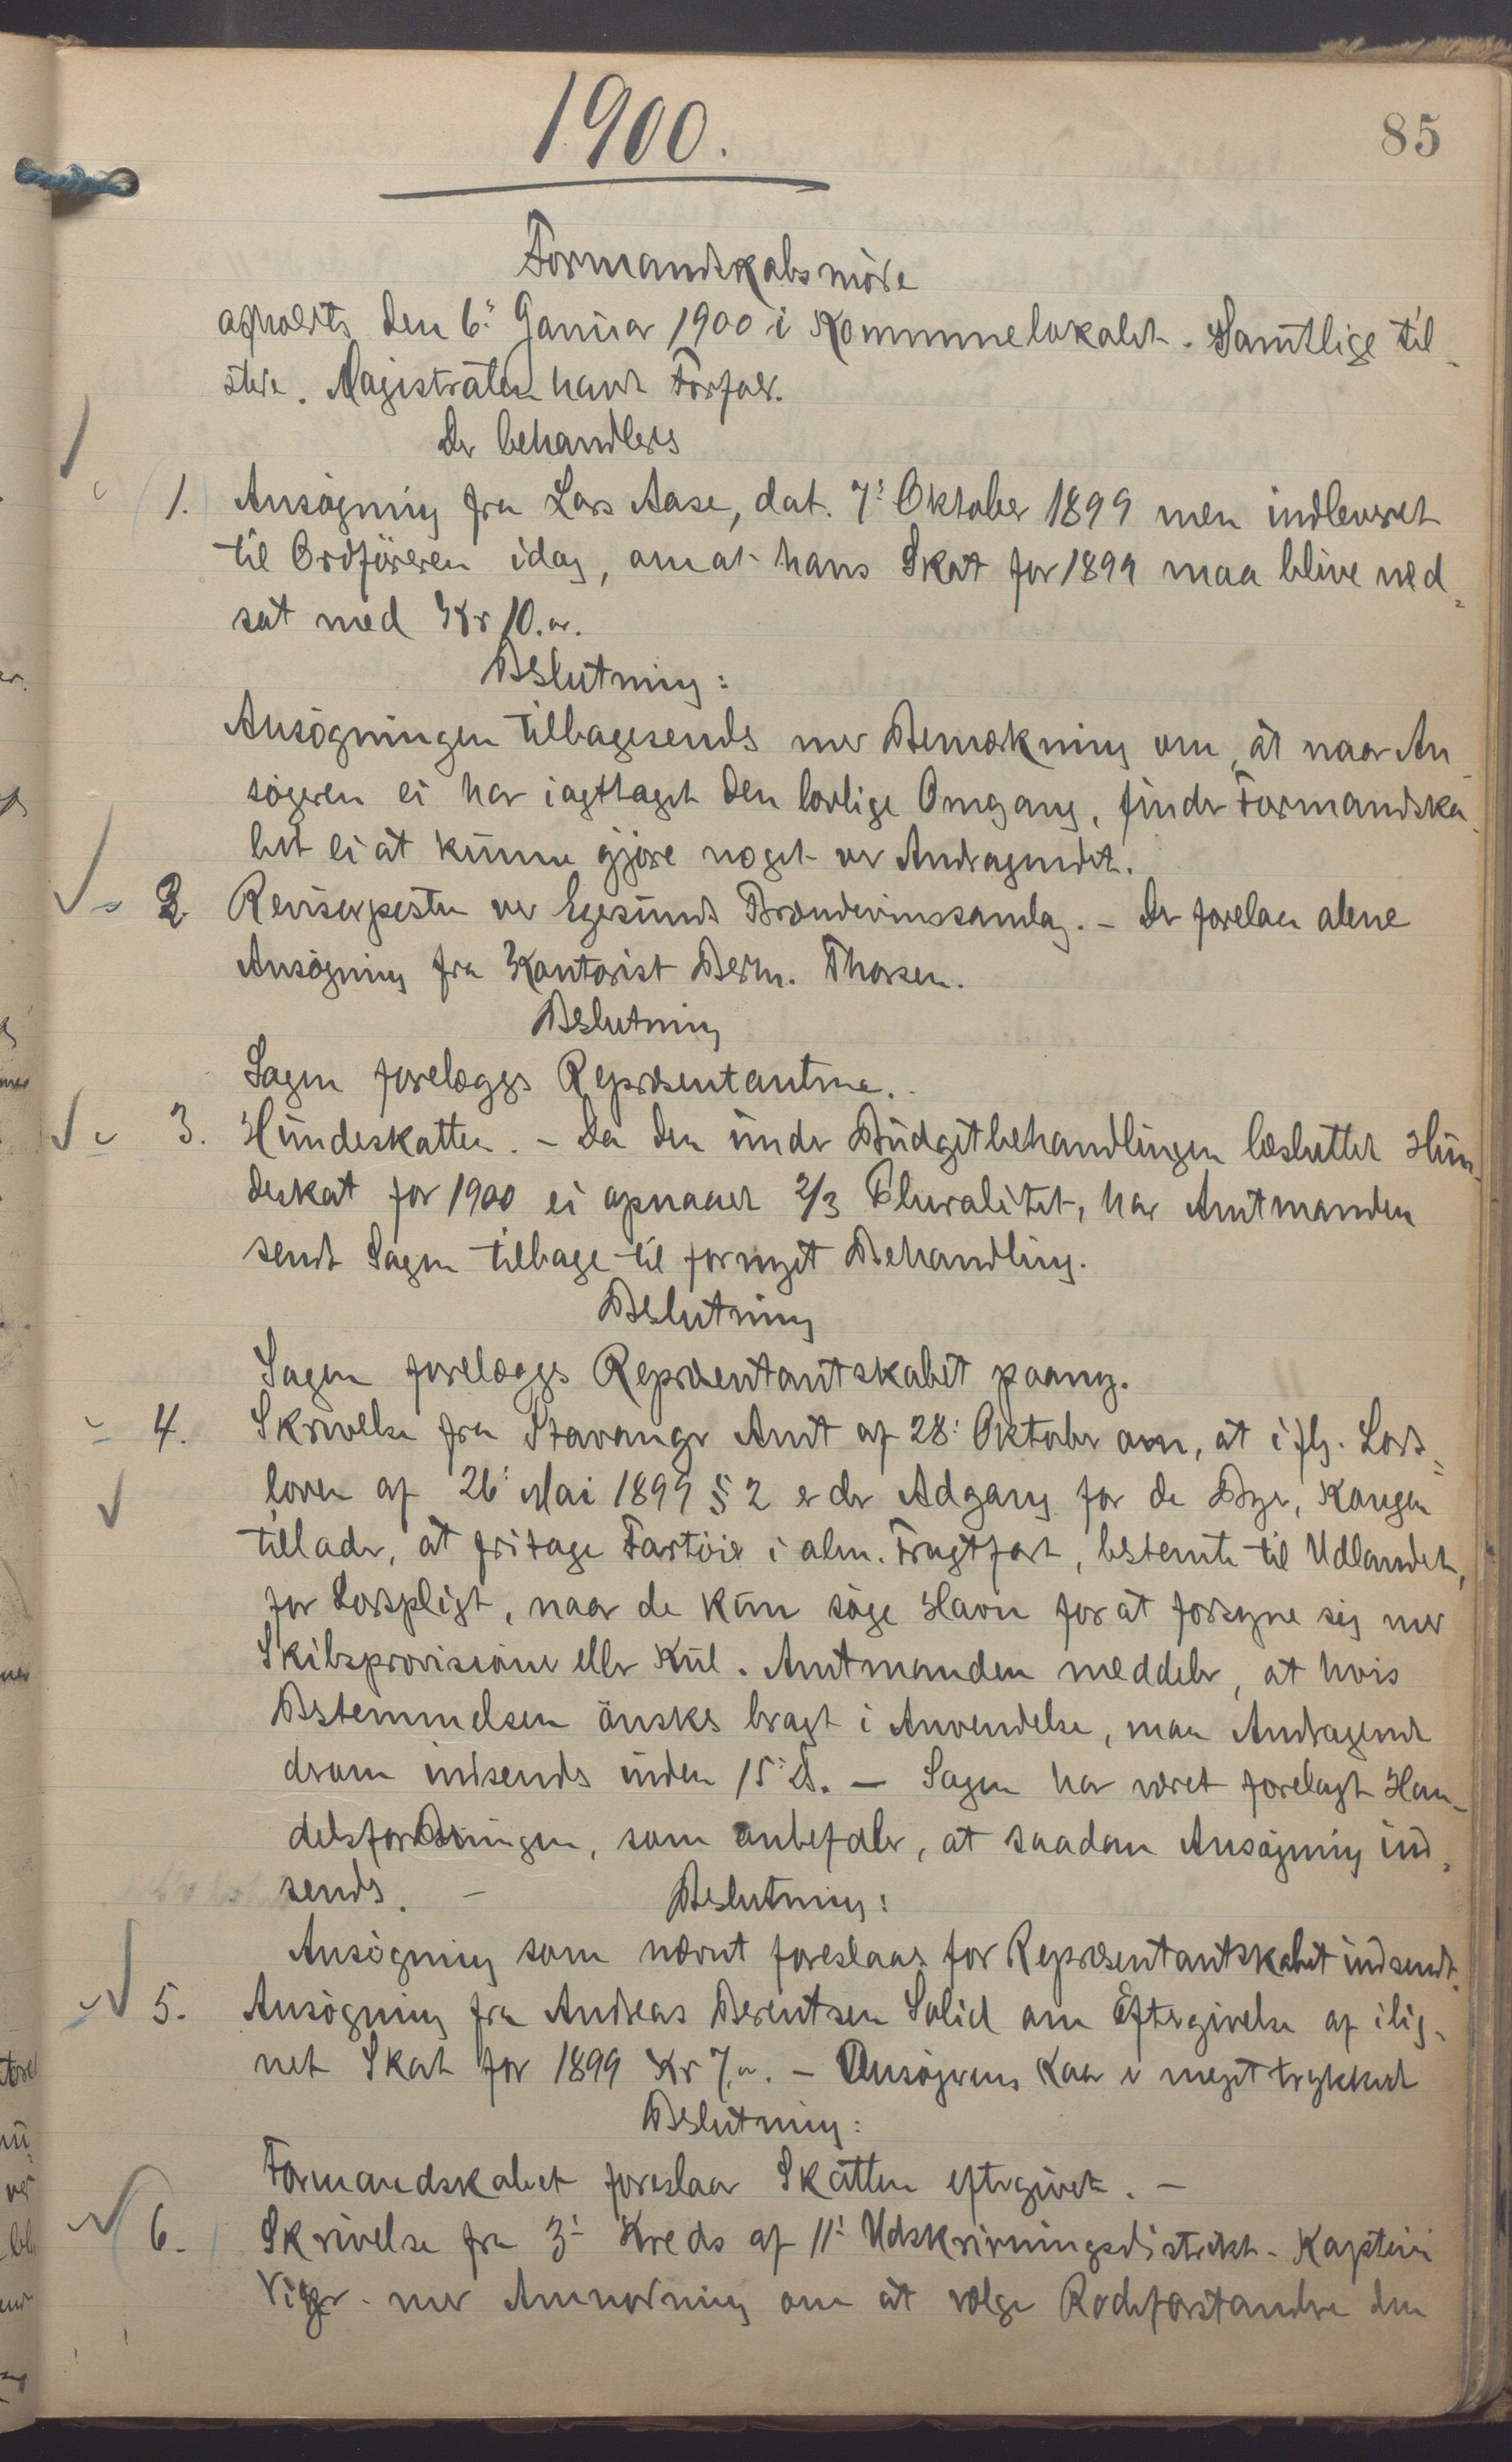 1900.
85
Formandskabsmöde
afholdts den 6: Januar 1900 i Kommunelokalet. Samtlige til-
stede. Magistraten havde Forfald.
Der behandledes
1. Ansøgning fra Lars Aase, dat. 7: Oktober 1899 men indleveret
til Ordföreren idag, om at hans Skat for 1899 maa blive ned-
sat med Kr 10.
Beslutning:
Ansøgningen tilbagesendes med Bemærkning om, at naar An-
søgeren ei har iagttaget den lovlige Omgang, finder Formandska-
bet ei at kunne gjøre noget ved Andragendet.
2 Revisorposten ved Egersunds Brændevinssamlag. - Der forelaa alene
Ansøgning fra Kontorist Bern. Thorsen.
Beslutning
Sagen forelægges Repræsentanterne.
3. Hundeskatten. - Da den under Budgetbehandlingen besluttet Hun-
deskat for 1900 ei opnaaed 2/3 Pluralitet, har Amtmanden
sendt Sagen tilbage til fornyet Behandling.
Beslutning
Sagen forelægges Repræsentantskabet paany.
4. Skrivelse fra Stavanger Amt af 28: Oktober om, at iflg. Lods-
loven af 26: Mai 1899 § 2 er der Adgang for de Byer, Kongen
tillader, at fritage Fartöier i alm. Fragtfart, bestemte til Udlandet,
for Lodspligt, naar de kun søge Havn for at forsyne sig med
Skibsprovisioner eller Kul. Amtmanden meddeler, at hvis
Bestemmelsen önskes bragt i Anvendelse, maa Andragende
derom indsendes inden 15: ds. - Sagen har været forelagt Han-
delsforeningen, som anbefaler, at saadan Ansøgning ind-
sendes. - Beslutning:
Ansøgning som nævnt foreslaaes for Repræsentantskabet indsendt.
5. Ansøgning fra Andreas Berentsen Solid om Eftergivelse af ilig-
net Skat for 1899 Kr 7. - Ansøgerens Kaar er meget trykket
Beslutning:
Formandskabet foreslaar Skatten eftergivet. -
6. Skrivelse fra 3: Kreds af 11: Udskrivningsdistrikt - Kaptein
- med Anmodning om at vælge Rodeforstandere den